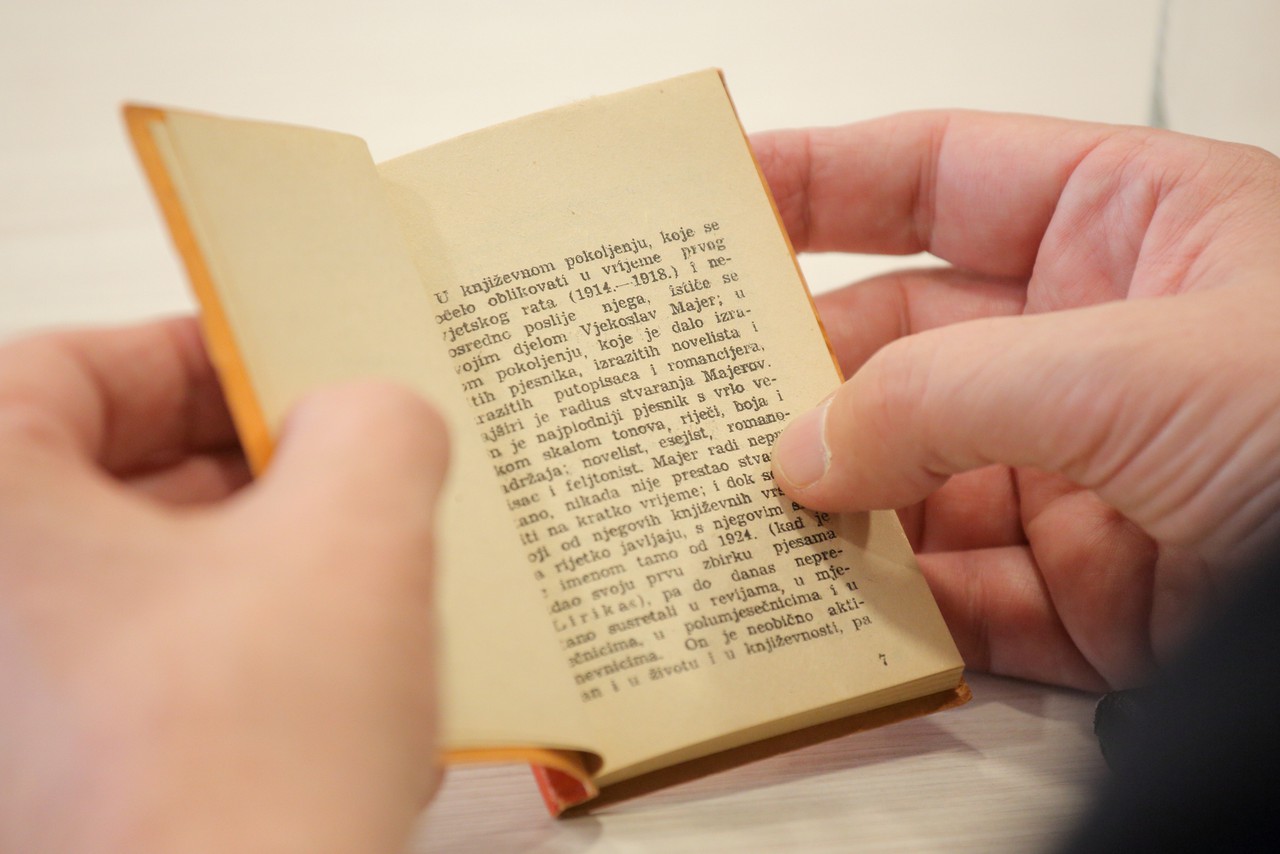 U književnom pokoljenju, koje se
očelo oblikovati u vrijeme prvog
vjetskog rata (1914.—1918.) i ne-
osredno poslije njega, ističe se
vojim djelom Vjekoslav Majer; u
om pokoljenju, koje je dalo izra-
tih pjesnika, izrazitih novelista i
razitih putopisaca i romancijera,
ajširi je radius stvaranja Majerov.
n je najplodniji pjesnik s vrlo ve-
kom skalom tonova, riječi, boja i
adržaja; novelist, esejist, romano-
isac i feljtonist. Majer radi nepr
ano, nikada nije prestao stva
iti na kratko vrijeme; i dok s
oji od njegovih književnih vrs
a rijetko javljaju, s njegovim s
imenom tamo od 1924. (kad je
dao svoju prvu zbirku pjesama
Lirika), pa do danas nepre-
ano susretali u revijama, u mje-
ečnicima, u polumjesečnicima i u
nevnicima. On je neobično akti-
an i u životu i u književnosti, pa
7